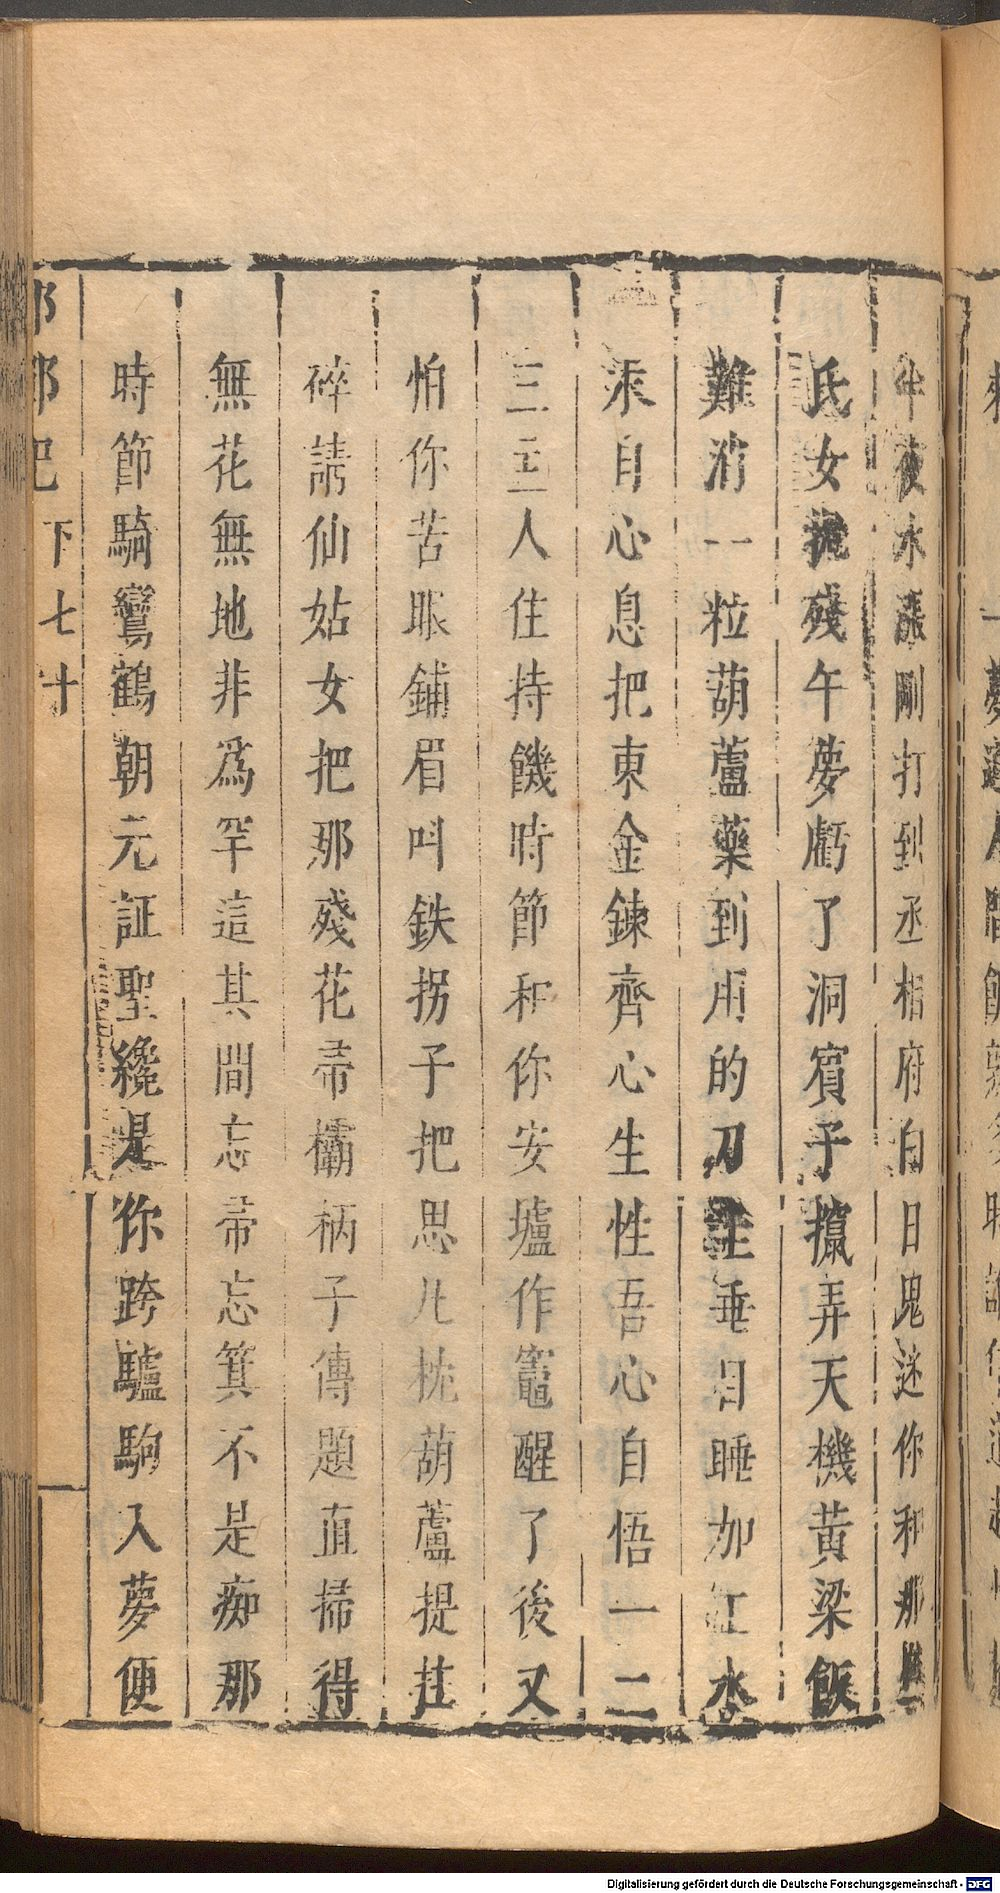 半夜水漲剛打到丞相府白日鬼迷你和那崔
氏女攪殘午夢虧了洞賓子攛弄天機黃粱飯
難消一粒葫蘆藥到用的刀圭垂目睡加江水
汞自心息把東金鍊齊心生性吾心自悟一二
三三人住持饑時節和你安壚作竈醒了後又
怕你苦眼鋪眉叫鉄拐子把思凡枕葫蘆提拄
碎請仙姑女把那殘花帚欛柄子傳題直掃得
無花無地非爲罕這其間忘帚忘箕不是痴那
時節騎鸞鶴朝元証聖纔是你跨驢駒入夢便
邯鄲記 下 七十
Digitalisierung gefördert durch die Deutsche Forschungsgemeinschaft - DFG